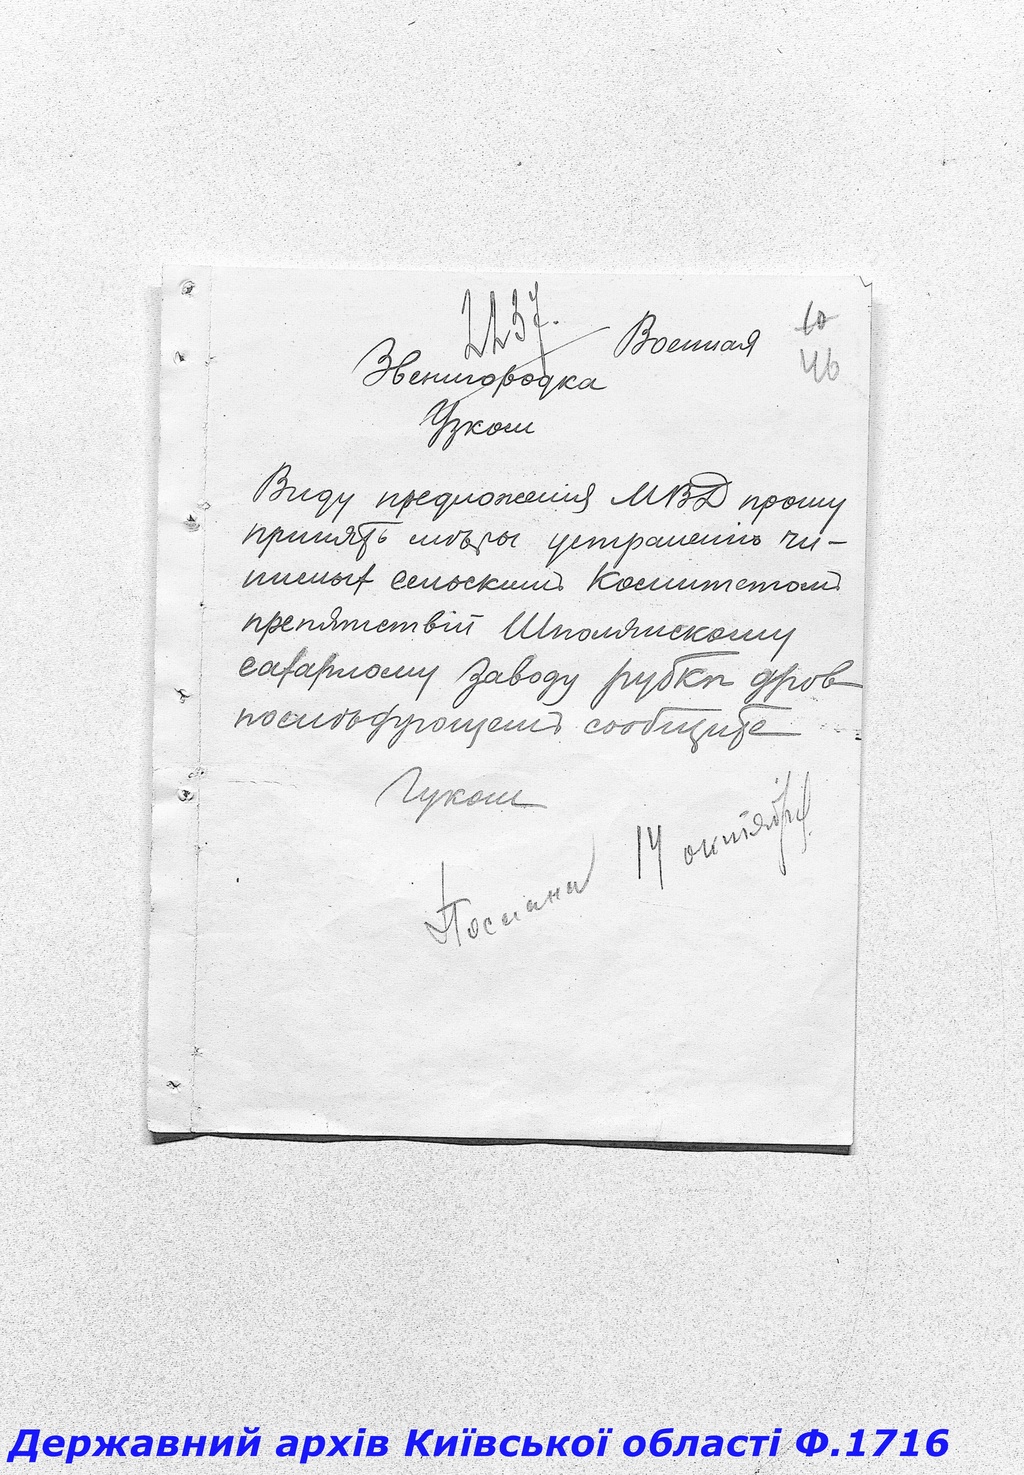 2237.
Военная
10
46
Звенигородка
Узком
Виду предложенія МВД прошу
принять мѣры устраненію чи-
нимыя сельским Комитетом
препятствій Шполянскому
сахарному заводу рубки дров
послѣдующем сообщите
Гуком
Послана 14 октября
Державний архів Київської області Ф.1716